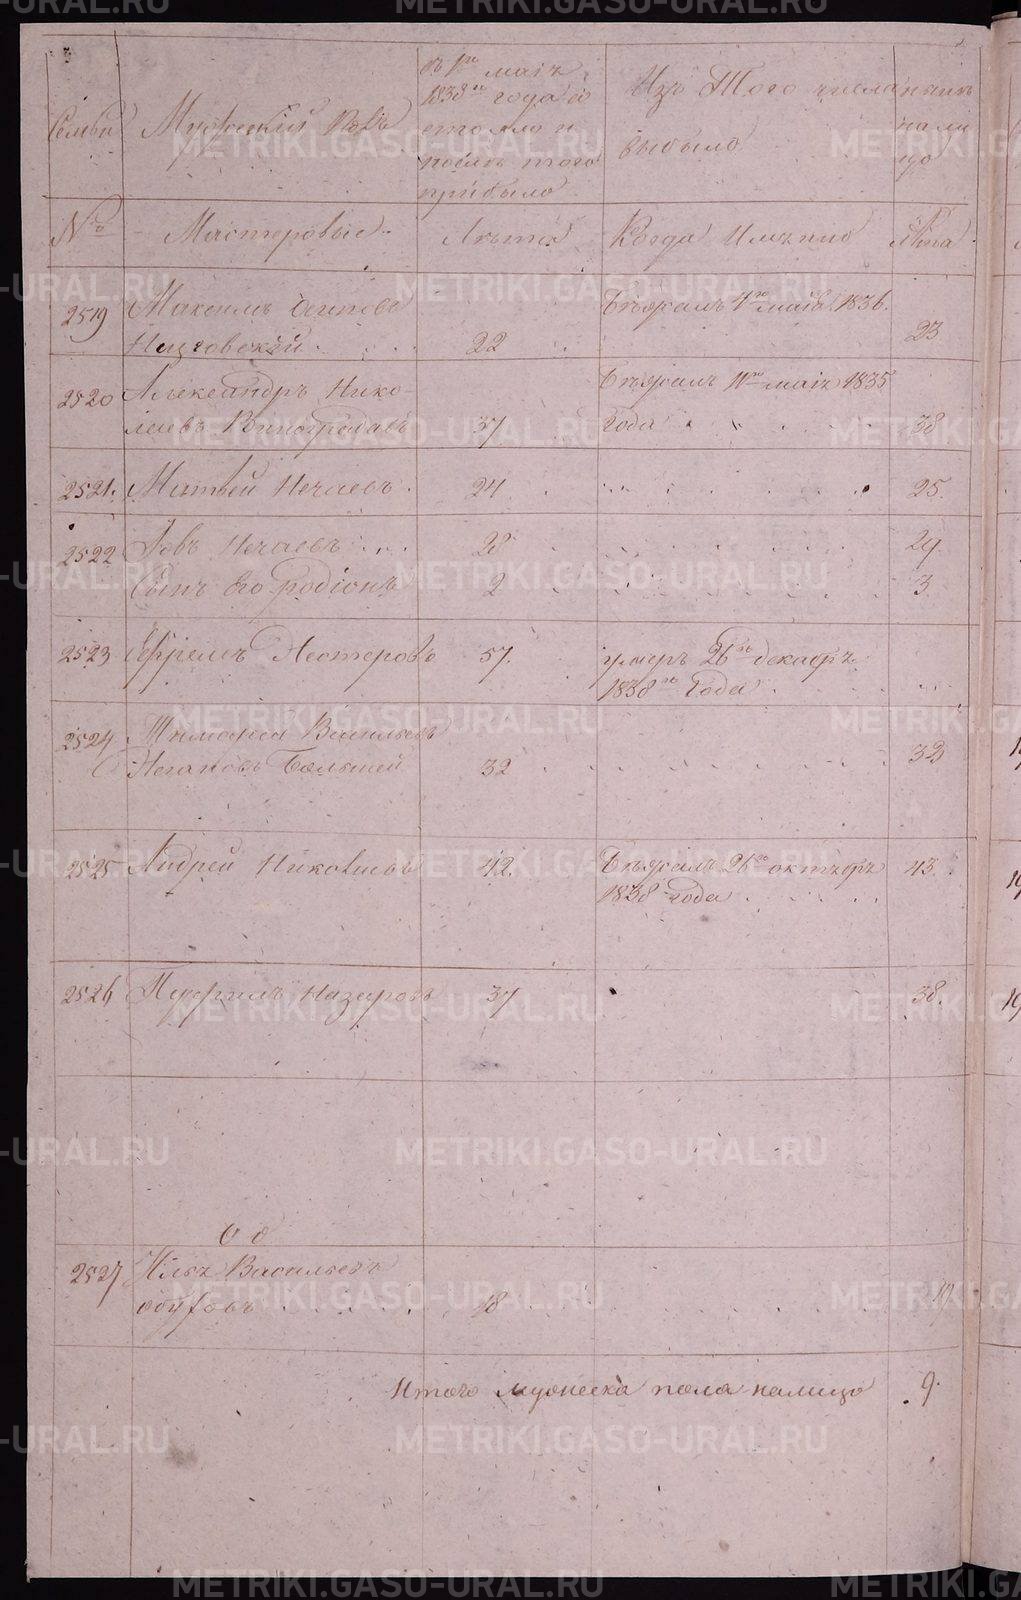 METRIKI.GASO-URAL.RU
Семьи
Мужескiй Полъ
Въ 1е маiя
1838го года со
стояло и
послѣ того
прибыло
Изъ Того числа
выбыло
нынѣ
нали
цо
№
Мастеровые
Лѣта
Когда Имянно
Лѣта
2519 Максимъ Осиповъ
22 Бѣжалъ 1го маiя 1836. 23
2520 Александръ Нико-
лаевъ Виноградовъ 37
Бѣжалъ 11го маiя 1835
года 38
2521. Матвей Нечаевъ 24 25.
2522 Iовъ Нечаевъ 28 29.
Сынъ Его родiонъ 2 3
2523 Ефремъ Нестеровъ 57. умеръ 26го декабря
1838го года
2524 Тимофей Васильевъ
Потаповъ Большей 32 33
2525 Андрей Николаевъ 42. Бѣжалъ 26го октября 43.
1838 года
2526 Перфилъ Назаровъ 37 38.
2527 Илья Васильевъ
18 19
Итого мужеска пола налицо 9.